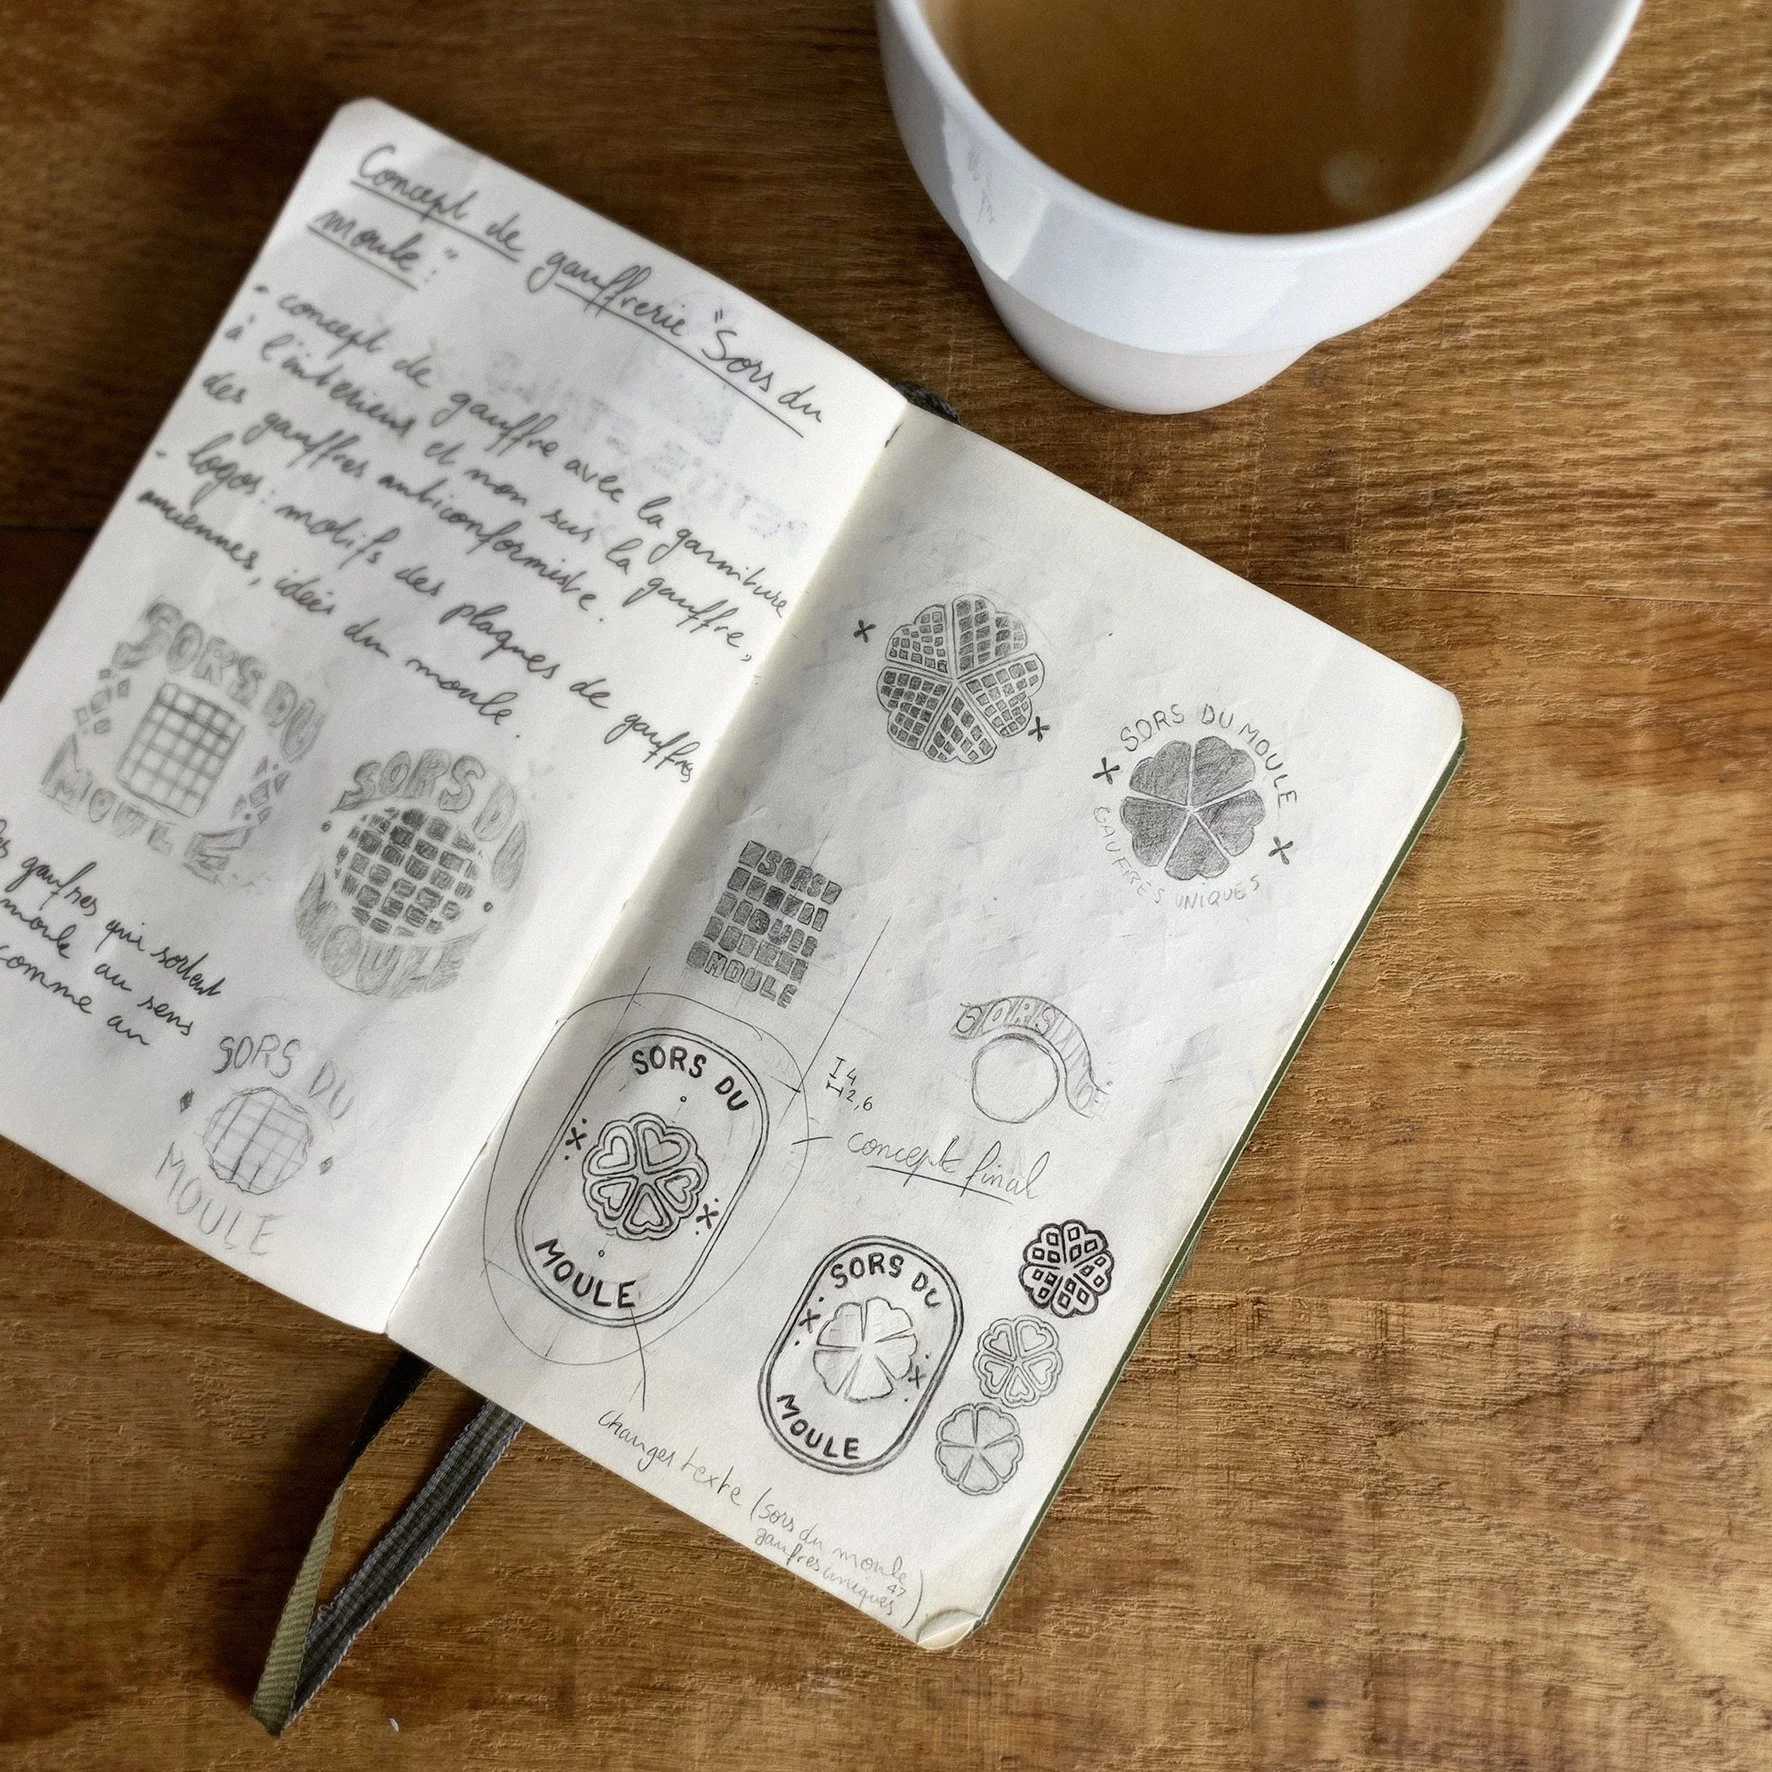 Concept de gaufrerie "Sors du
moule:"
- concept de gauffre avec la garniture
à l'interieur et non sur la gauffre,
des gauffres anticonformiste.
- logos: motifs des plaques de gauffres
anciennes, idées du moule.
SORS DU
MOULE
SORS DU
MOULE
gaufres qui sortent
moule au sens
comme au
SORS DU
MOULE
SORS DU MOULE
GAUFRES UNIQUES
SORS
MOULE
SORS DU
4
2,6
concept final
SORS DU
MOULE
SORS DU
MOULE
changer texte (sors du moule
gaufres uniques)
47